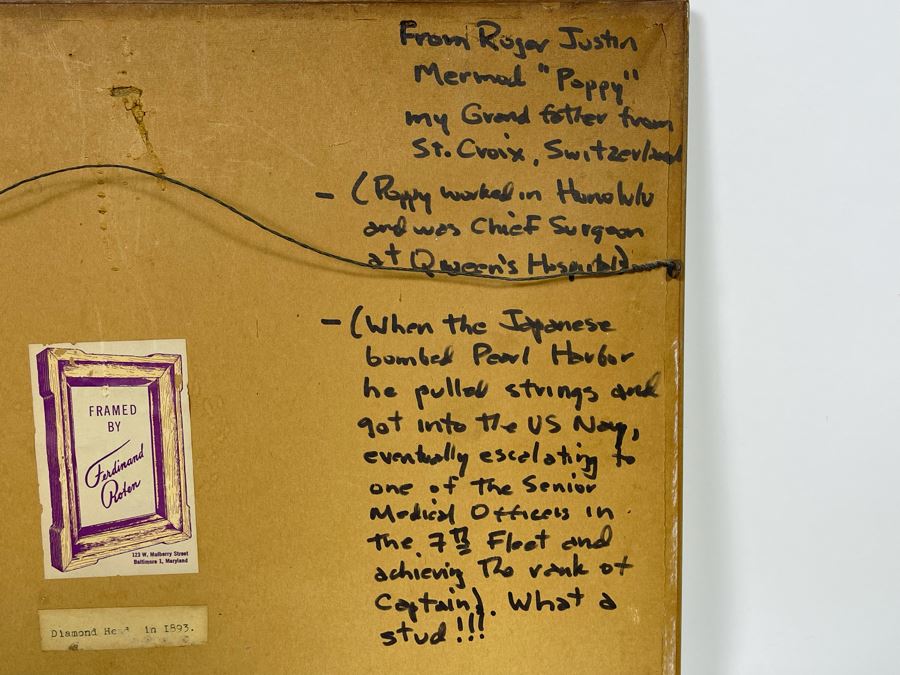 From Roger Justin
Mermod "Poppy"
my Grand father from
St. Croix, Switzerland
- (Poppy worked in Honolulu
and was Chief Surgeon
at Queen's Hospital)
- (When the Japanese
bombed Pearl Harbor
he pulled strings and
got into the US Navy,
eventually escalating to
one of the Senior
Medical Officers in
the 7th Fleet and
achieving the rank of
Captain). What a
stud!!!
FRAMED
BY
Ferdinand
Roten
123 W. Mulberry Street
Baltimore 1, Maryland
Diamond Head in 1893.